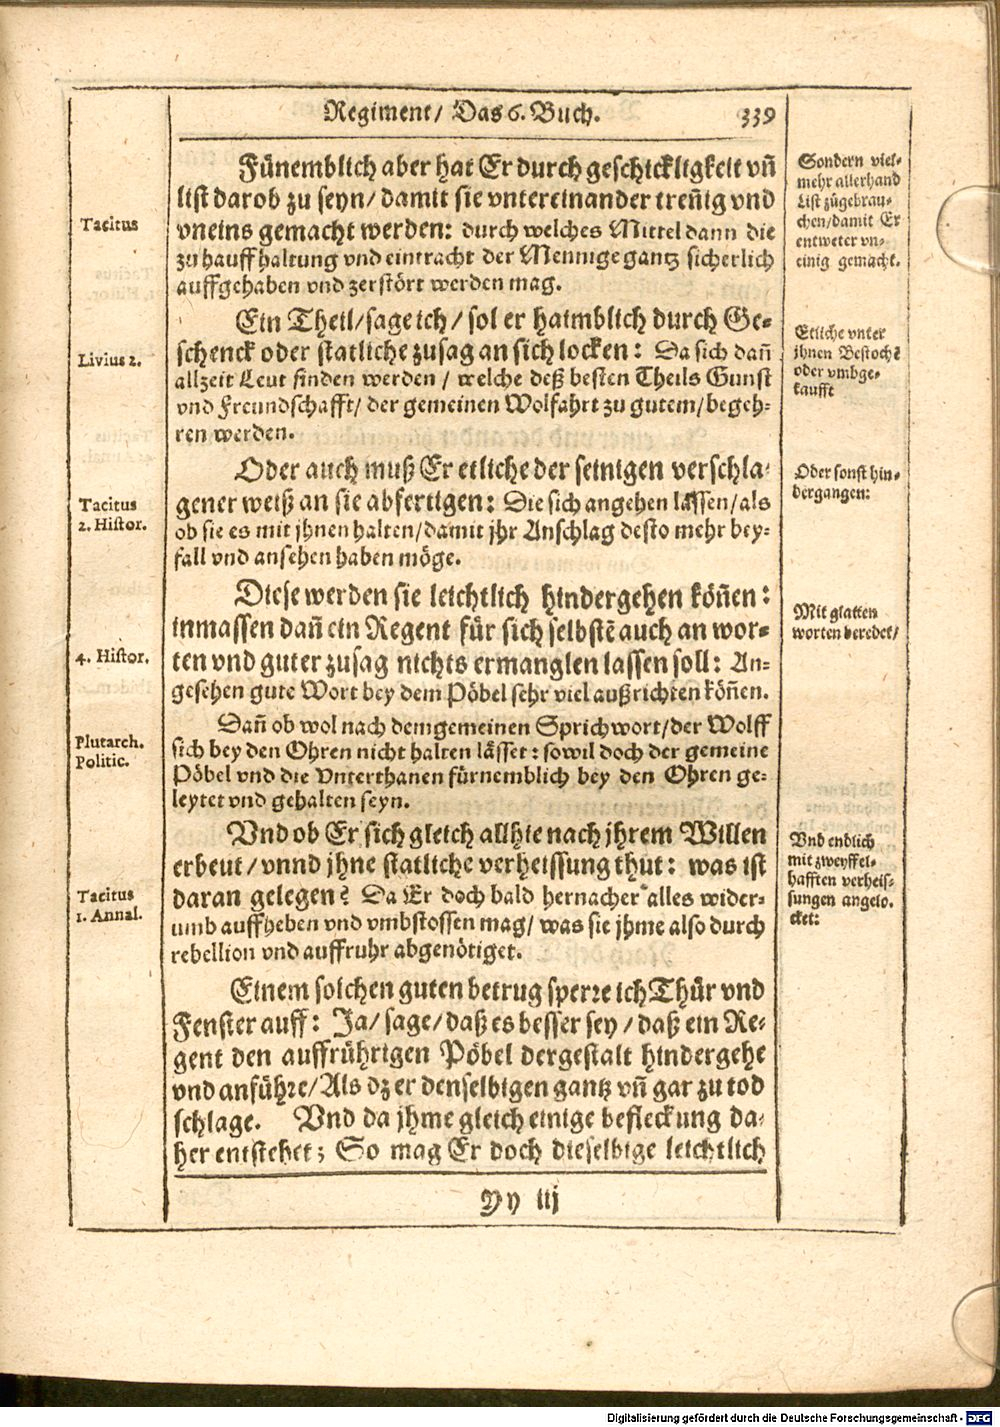 Regiment/ Das 6. Buch. 339
Fünemblich aber hat Er durch geschickligkeit vñ
list darob zu seyn/ damit sie vntereinander treñig vnd
vneins gemacht werden: durch welches Mittel dann die
zuhauffhaltung vnd eintracht der Mennige gantz sicherlich
auffgehaben vnd zerstört werden mag.
Ein Theil/ sage ich/ sol er haimblich durch Ge-
schenck oder statliche zusag an sich locken: Da sich dañ
allzeit Leut finden werden/ welche deß besten Theils Gunst
vnd Freundschafft/ der gemeinen Wolfahrt zu gutem/ begeh-
ren werden.
Oder auch muß Er etliche der seinigen verschla-
gener weiß an sie abfertigen: Die sich angehen lassen/ als
ob sie es mit jhnen halten/ damit jhr Anschlag desto mehr bey-
fall vnd ansehen haben möge.
Diese werden sie leichtlich hindergehen köñen:
inmassen dañ ein Regent für sich selbstẽ auch an wor-
ten vnd guter zusag nichts ermanglen lassen soll: An-
gesehen gute Wort bey dem Pöbel sehr viel außrichten köñen.
Dañ ob wol nach dem gemeinen Sprichwort/ der Wolff
sich bey den Ohren nicht halten lässet: so wil doch der gemeine
Pöbel vnd die Vnterthanen fürnemblich bey den Ohren ge-
leytet vnd gehalten seyn.
Vnd ob Er sich gleich allhie nach jhrem Willen
erbeut/ vnnd jhne statliche verheissung thut: was ist
daran gelegen? Da Er doch bald hernacher alles wider-
umb auffheben vnd vmbstossen mag/ was sie jhme also durch
rebellion vnd auffruhr abgenötiget.
Einem solchen guten betrug sperre ich Thür vnd
Fenster auff: Ja/ sage/ daß es besser sey/ daß ein Re-
gent den auffrührigen Pöbel dergestalt hindergehe
vnd anführe/ Als dz er denselbigen gantz vñ gar zu tod
schlage. Vnd da jhme gleich einige befleckung da-
her entstehet; So mag Er doch dieselbige leichtlich
Yy iij
Tacitus
Livius 2.
Tacitus
2. Histor.
4. Histor.
Plutarch.
Politic.
Tacitus
1. Annal.
Sondern viel-
mehr allerhand
List zügebrau-
chen/ damit Er
entweter vn-
einig gemacht.
Etliche vnter
jhnen Bestochẽ
oder vmbge-
kaufft
Oder sonst hin-
dergangen:
Mit glatten
worten beredet/
Vnd endlich
mit zweyffel-
hafften verheis-
sungen angelo.
cket:
Digitalisierung gefördert durch die Deutsche Forschungsgemeinschaft - DFG